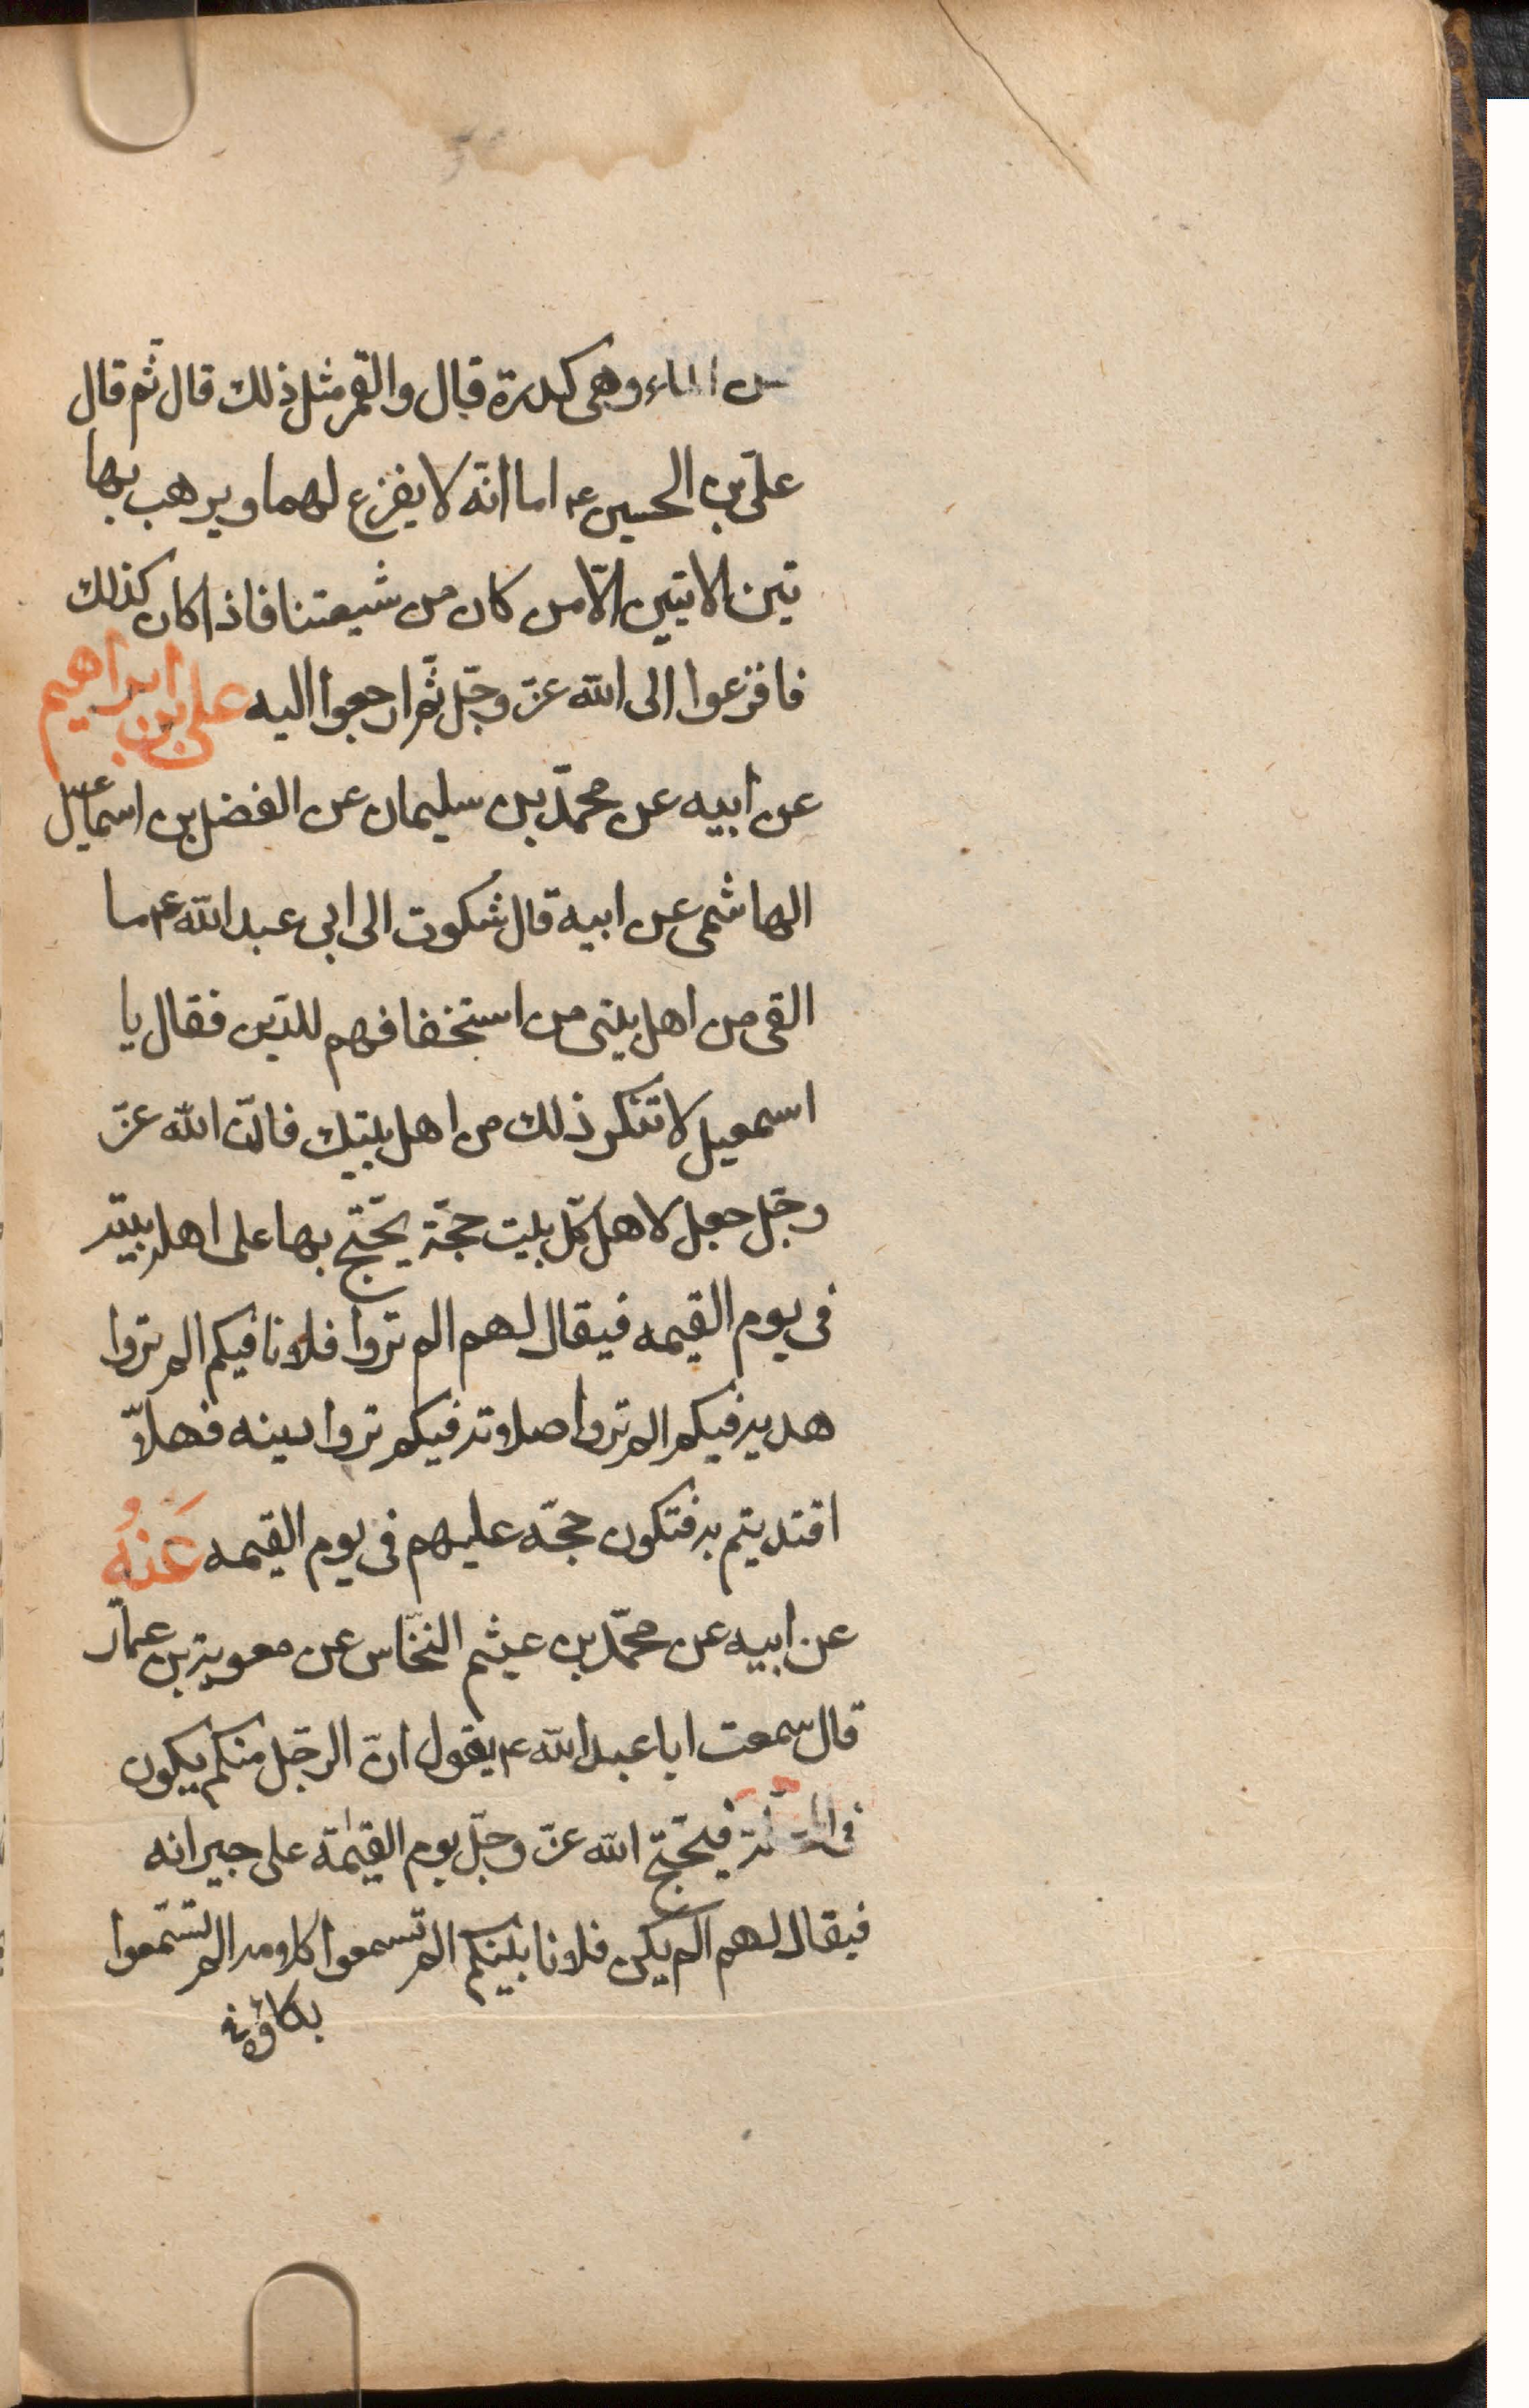 من الماء وهى كدرة قال والقمر مثل ذلك قال ثم قال
علىّ بن الحسين ع اما انّه لا يفزع لهما ويرهب بها
تين الايتين الّا من كان من شيعتنا فاذا كان كذلك
فافزعوا الى اللّه عزّ وجلّ ثمّ ارجعوا اليه على بن ابراهيم
عن ابيه عن محمّد بن سليمان عن الفضل بن اسمعيل
الهاشمى عن ابيه قال شكوت الى ابى عبد اللّه ع ما
القى من اهل بيتى من استخفافهم للدّين فقال يا
اسمعيل لا تنكر ذلك من اهل بيتك فانّ اللّه عزّ
وجلّ جعل لاهل كلّ بيت حجّة يحتجّ بها على اهل بيته
فى يوم القيمه فيقال لهم الم تروا فلانا فيكم الم تروا
هديه فيكم الم تروا صلاته فيكم تروا دينه فهلّا
اقتديتم به فتكون حجّه عليهم فى يوم القيمه عَنهُ
عن ابيه عن محمّد بن عيثم النخّاس عن معوية بن عمّار
قال سمعت ابا عبد اللّه ع يقول انّ الرجل منكم يكون
فى فيحتجّ اللّه عزّ وجلّ يوم القيٰمة على جيرانه
فيقال لهم الم يكن فلانا بينكم الم تسمعوا كلامه الم تستمعوا
بكاؤه فى